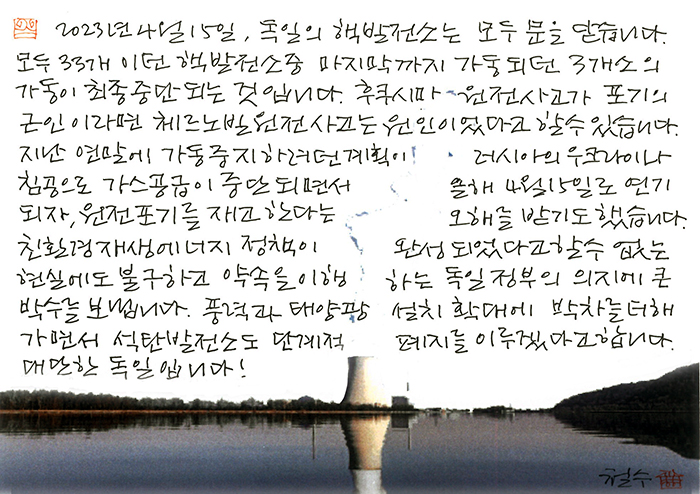 2023년 4월 15일, 독일의 핵발전소는 모두 문을 닫습니다.
모두 33개 이던 핵발전소중 마지막까지 가동되던 3개소의
가동이 최종중단 되는 것입니다. 후쿠시마 원전사고가 포기의
근인이라면 체르노빌원전사고는 원인이었다고 할수있습니다.
지난 연말에 가동중지하려던계획이 러시아의 우크라이나
침공으로 가스공급이 중단되면서 올해 4월15일로 연기
되자, 원전포기를 재고한다는 오해를 받기도했습니다.
친환경재생에너지 정책이 완성되었다고할수 없는
현실에도 불구하고 약속을이행 하는 독일정부의 의지에 큰
박수를 보냅니다. 풍력과 태양광 설치 확대에 박차를더해
가면서 석탄발전소도 단계적 폐지를 이루겠다고합니다.
대단한 독일입니다!
철수